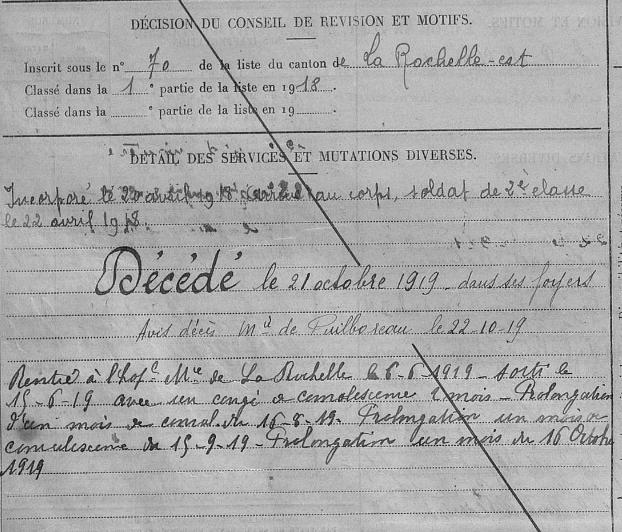 DÉCISION DU CONSEIL DE REVISION ET MOTIFS.
Inscrit sous le n° 70 de la liste du canton de La Rochelle-est
Classé dans la 1 e partie de la liste en 1918.
Classé dans la e partie de la liste en 19
DÉTAIL DES SERVICES ET MUTATIONS DIVERSES.
Incorporé le 20 avril 1918 au corps, soldat de 2e classe
le 22 avril 1918.
Décédé le 21 octobre 1919 dans ses foyers
Avis décès Mie de Puilboreau le 22-10-19
Rentré à l'Hop. Mre de La Rochelle le 6-6-1919 - sorti le
15-6-19 avec un congé de convalescence 2 mois - Prolongation
d'un mois de conval. du 16-8-19. Prolongation un mois de
convalescence du 15-9-19 - Prolongation un mois du 16 Octobre
1919